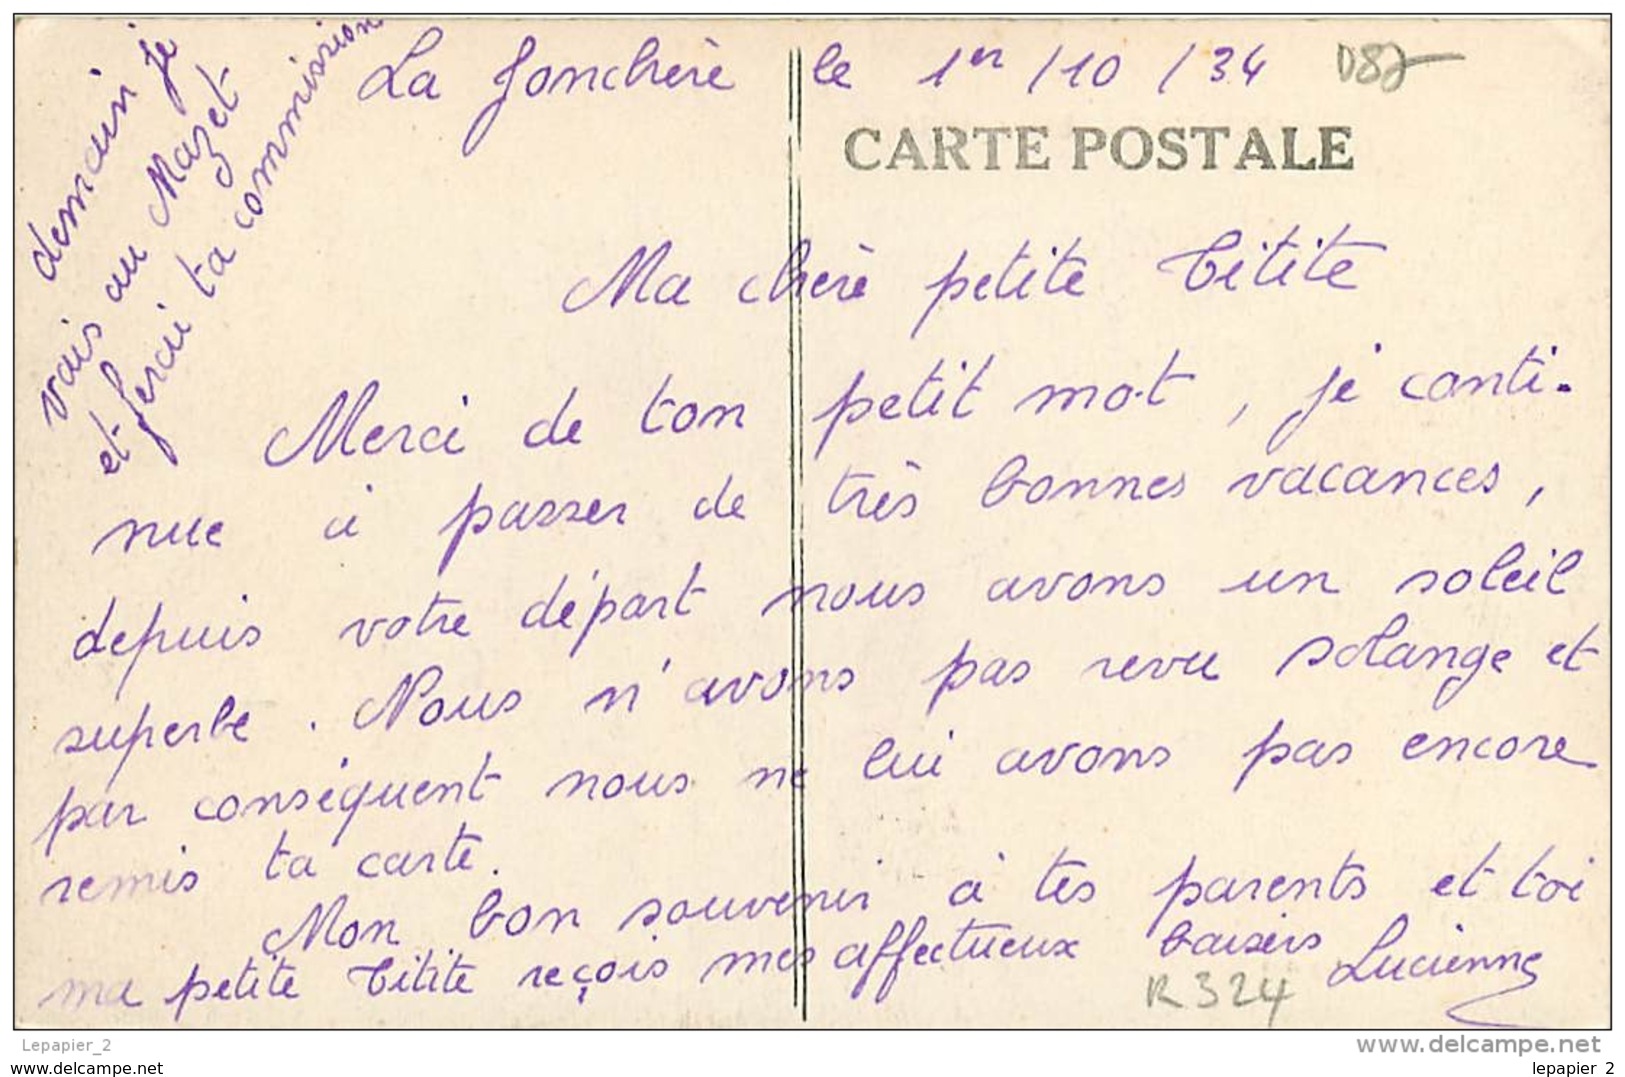 La Jonchère le 1er /10 /34 D87
CARTE POSTALE
demain je
vais au Mazet
et ferai ta commission
Ma chère petite Titite
Merci de ton petit mot, je conti-
nue à passer de très bonnes vacances,
depuis votre départ nous avons un soleil
superbe. Nous n'avons pas revu Solange et
par conséquent nous ne lui avons pas encore
remis ta carte.
Mon bon souvenir à tes parents et toi
ma petite Titite reçois mes affectueux baisers Lucienne
R 324
Lepapier_2
www.delcampe.net
lepapier_2
lepapier_2